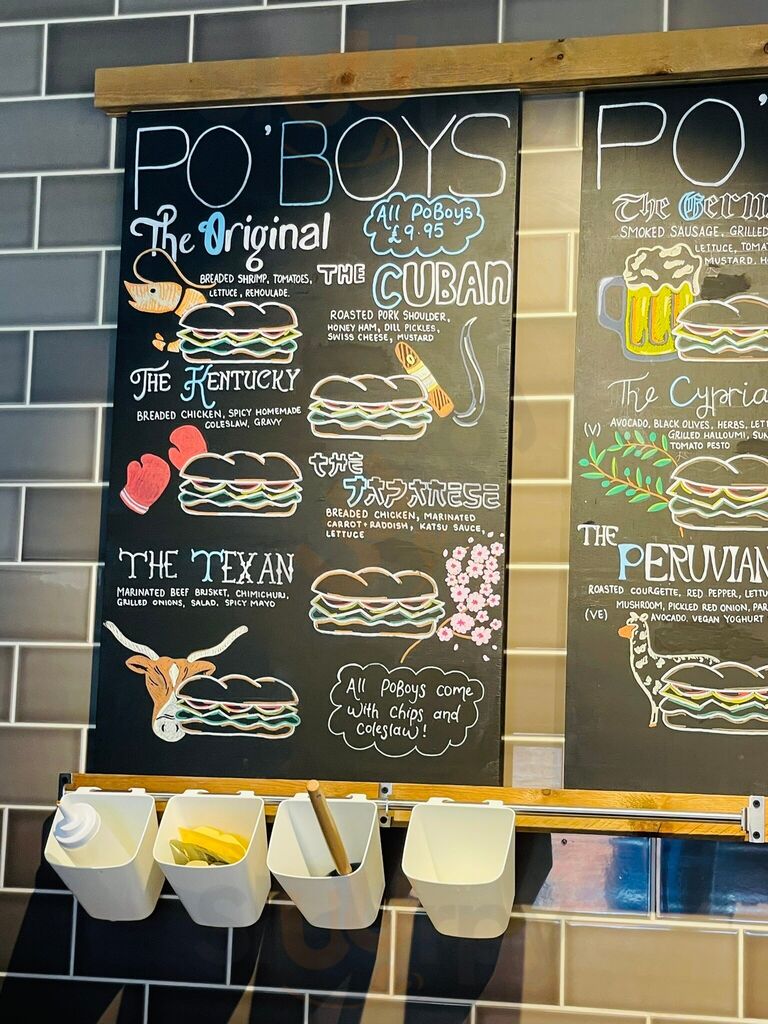 PO'BOYS
The Original
All PoBoys
£9.95
BREADED SHRIMP, TOMATOES,
LETTUCE, REMOULADE.
THE CUBAN
ROASTED PORK SHOULDER,
HONEY HAM, DILL PICKLES,
SWISS CHEESE, MUSTARD
THE KENTUCKY
BREADED CHICKEN, SPICY HOMEMADE
COLESLAW, GRAVY
THE
JAPANESE
BREADED CHICKEN, MARINATED
CARROT + RADDISH, KATSU SAUCE,
LETTUCE
THE TEXAN
MARINATED BEEF BRISKET, CHIMICHURI,
GRILLED ONIONS, SALAD, SPICY MAYO
All PoBoys come
with chips and
coleslaw!
PO'
The Germ
SMOKED SAUSAGE, GRILLED
LETTUCE, TOMAT
MUSTARD, H
The Cypria
(V) AVOCADO, BLACK OLIVES, HERBS, LETT
GRILLED HALLOUMI, SUN
TOMATO PESTO
THE
PERUVIAN
ROASTED COURGETTE, RED PEPPER, LETTU
(VE) MUSHROOM, PICKLED RED ONION, PAR
AVOCADO, VEGAN YOGHURT